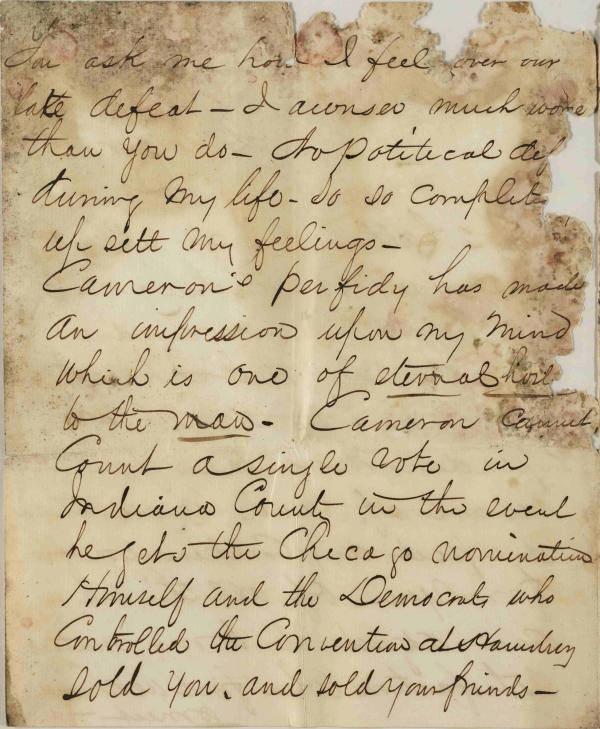 You ask me how I feel over our
late defeat – I awnser much worse
than you do – No political def
during my life – so so complet
up sett my feelings –
Cameron's perfidy has made
an impression upon my mind
which is one of eternal
to the man – Cameron cannot
Count a single vote in
Indiana County in the event
he gets the Chicago nomination
Himself and the Democrats who
Controlled the Convention at
sold you, and sold your friends –